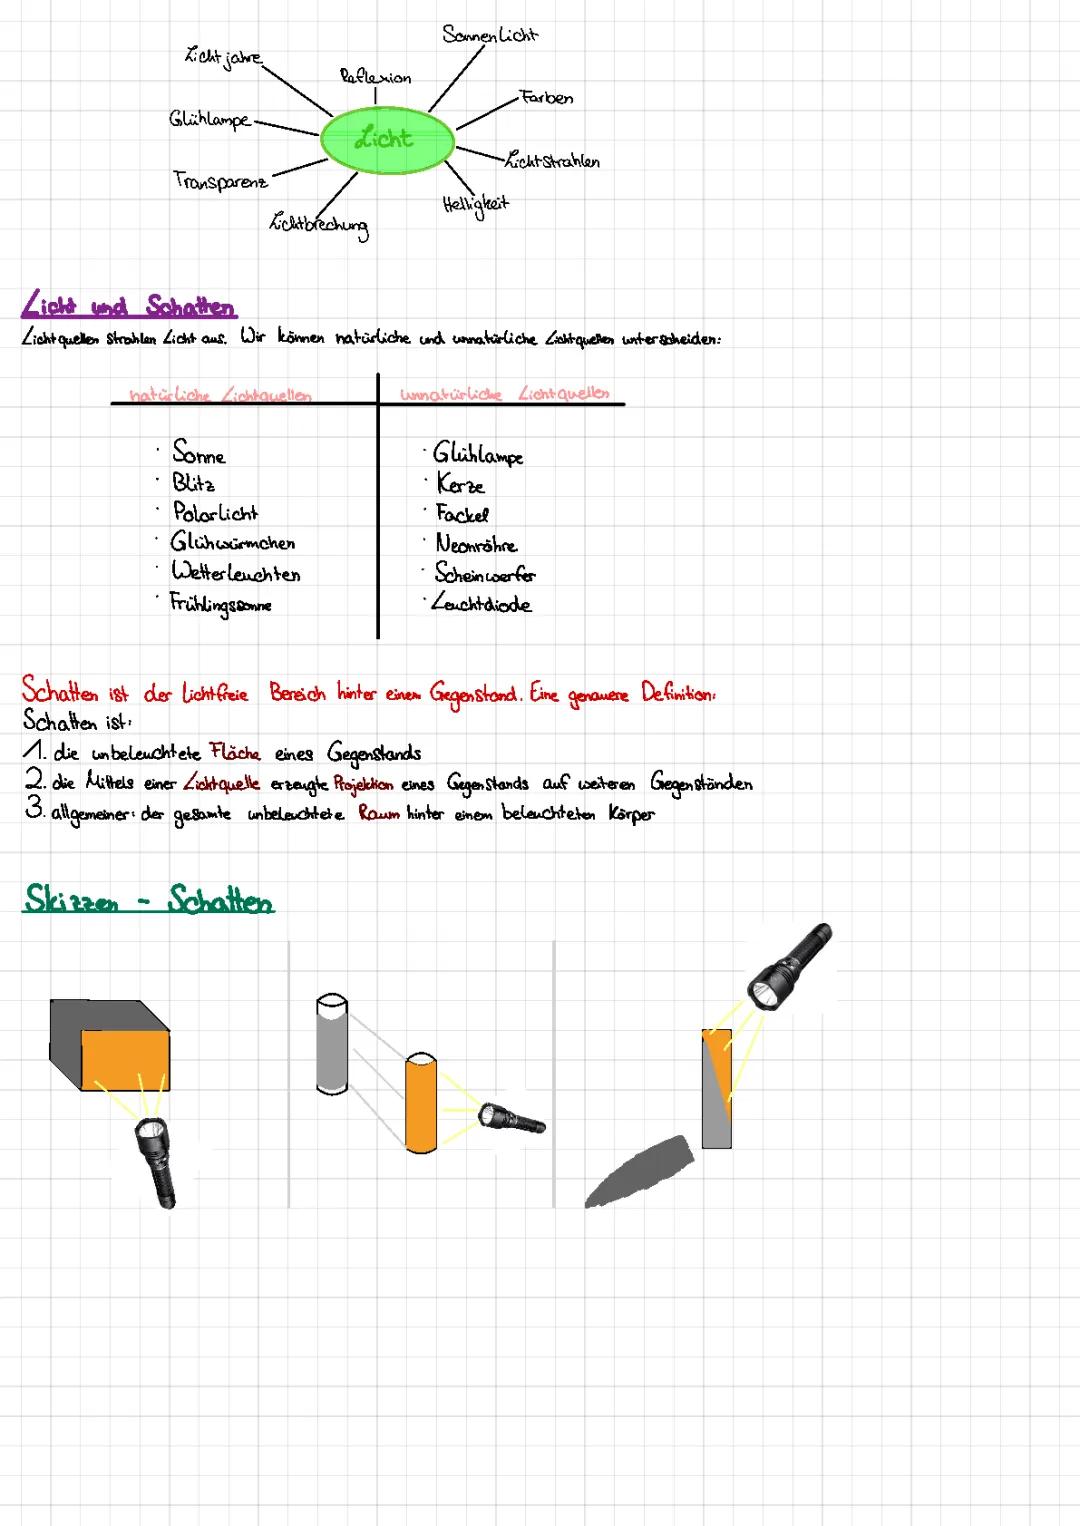 Lichtjahre
Sonnenlicht
Reflexion
Farben
Glühlampe
Licht
Lichtstrahlen
Transparenz
Helligkeit
Lichtbrechung
Licht und Schatten
Lichtquellen strahlen Licht aus. Wir können natürliche und unnatürliche Lichtquellen unterscheiden:
natürliche Lichtquellen
unnatürliche Lichtquellen
· Sonne
· Glühlampe
· Blitz
· Kerze
· Polarlicht
· Fackel
· Glühwürmchen
· Neonröhre
· Wetterleuchten
· Scheinwerfer
· Frühlingssonne
· Leuchtdiode
Schatten ist der lichtfreie Bereich hinter einem Gegenstand. Eine genauere Definition:
Schatten ist:
1. die unbeleuchtete Fläche eines Gegenstands
2. die Mittels einer Lichtquelle erzeugte Projektion eines Gegenstands auf weiteren Gegenständen
3. allgemeiner: der gesamte unbeleuchtete Raum hinter einem beleuchteten Körper
Skizzen - Schatten